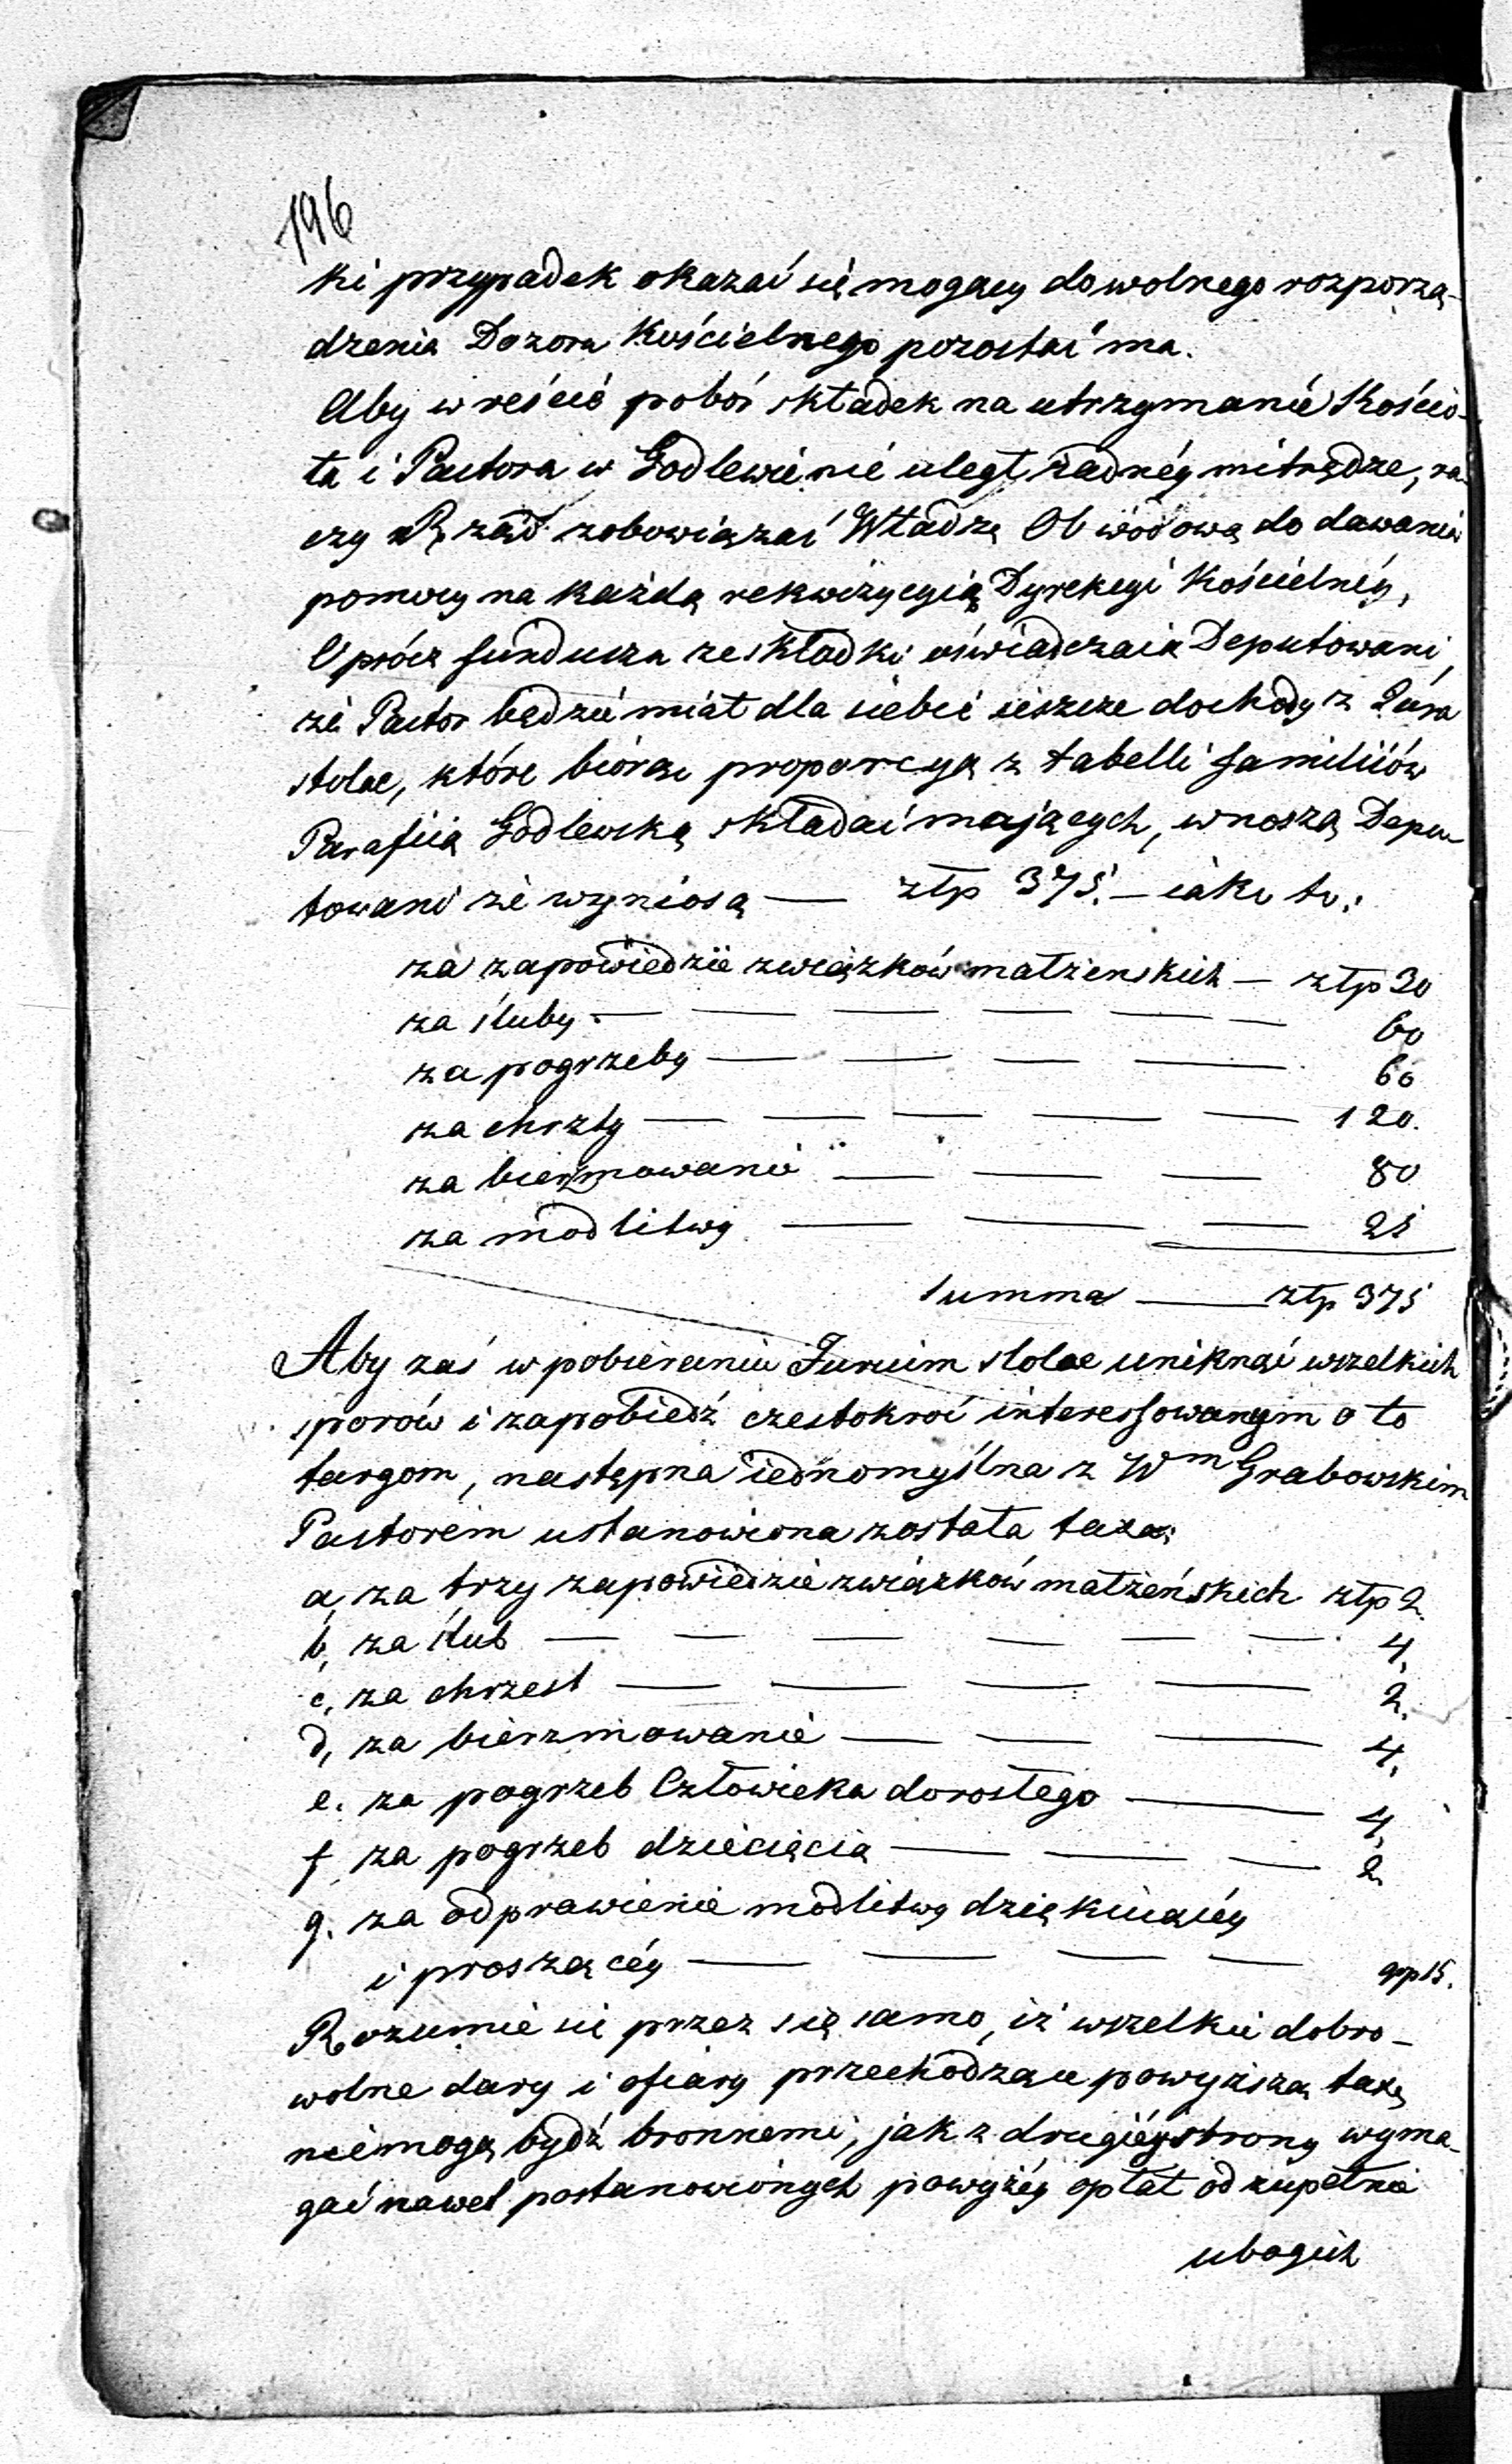 196
ki przypadek okazać się mogący do wolnego rozporzą-
dzenia Dozoru Kościelnego pozostać ma.
Aby wreście pobór składek na utrzymanie Kościo-
ła i Pastora w Godlewie nie uległ żadnéy mitrędze, ra-
czy Rząd zobowiązać Władzę Obwodową do dawania
pomocy na każdą rekwizycyią Dyrekcyi Kościelnéy,
Oprócz funduszu ze składki oświadczaią Deputowani,
że Pastor będzie miał dla siebie ieszcze dochody z Jura
stolae, które biorąc proporcyą z tabelli familiiów
Parafiią Godlewską składać mających, wnoszą Depu-
towani że wyniosą — złp 375. — iako to:
za zapowiedzie związków małżenskich — złp 30
za śluby — — — — — — 60
za pogrzeby — — — — 60
za chrzty — — — — — 120.
za bierzmowanie — — — 80
za modlitwy — — — 25
Summa — złp 375
Aby zaś w pobieraniu Jurium stolae uniknąć wszelkich
sporów i zapobiedź częstokroć interessowanym o to
targom, następna iednomyślna z Wm Grabowskim
Pastorem ustanowiona została taxa:
a, za trzy zapowiedzie związków małżeńskich złp 2.
b, za ślub — — — — — — 4,
c, za chrzest — — — — 2.
d, za bierzmowanie — — — 4,
e. za pogrzeb Człowieka dorosłego — 4,
f, za pogrzeb dziecięcia — — — 2.
g. za odprawienie modlitwy dziękuiącéy
i proszącéy — — — — grp 15.
Rozumie się przez się samo, iż wszelkie dobro-
wolne dary i ofiary przechodzące powyższą taxę
niemogą bydź bronnemi, jak z drugiéy strony wyma-
gać nawet postanowionych powyżéy opłat od zupełnie
ubogich